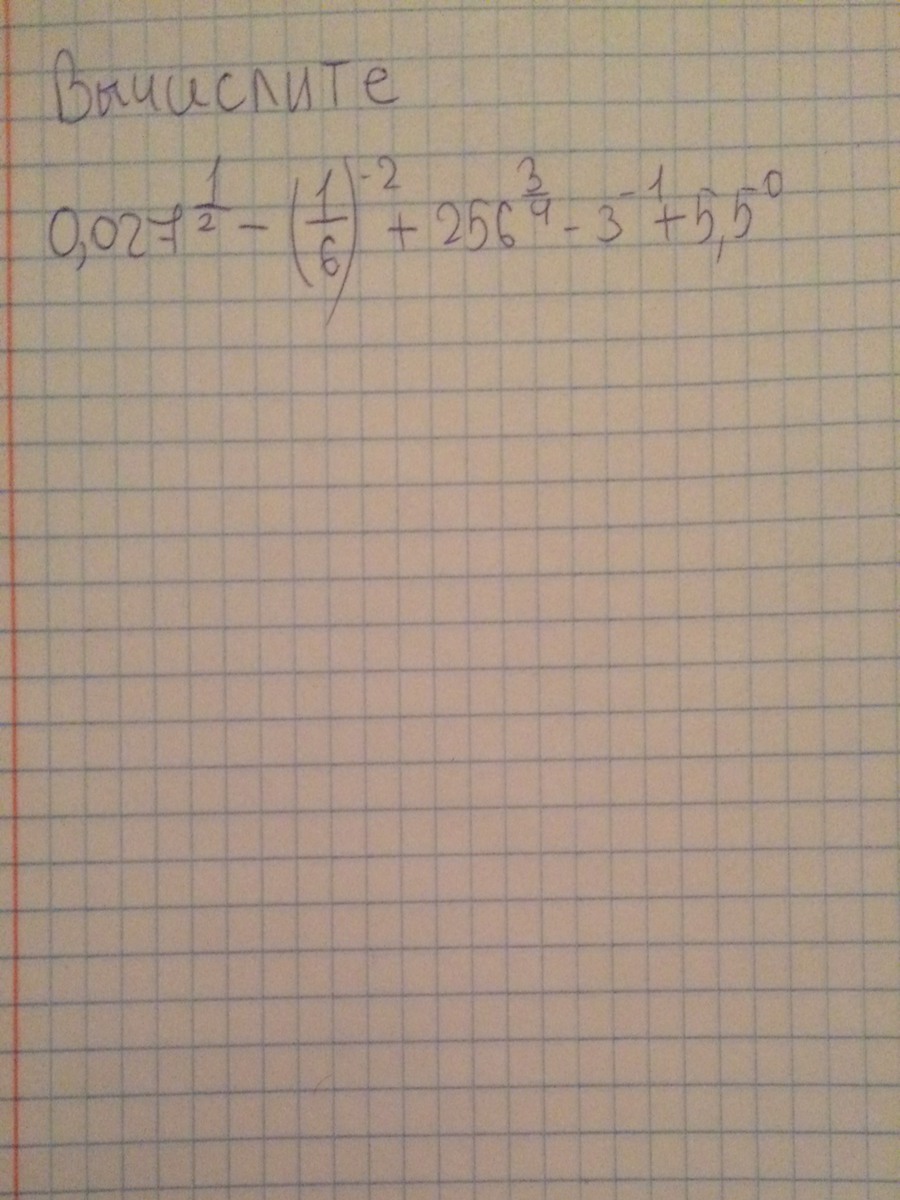 Вычислите
0,027^{\frac{1}{2}} - \left(\frac{1}{6}\right)^{-2} + 256^{\frac{3}{4}} - 3^{-1} + 5,5^{0}